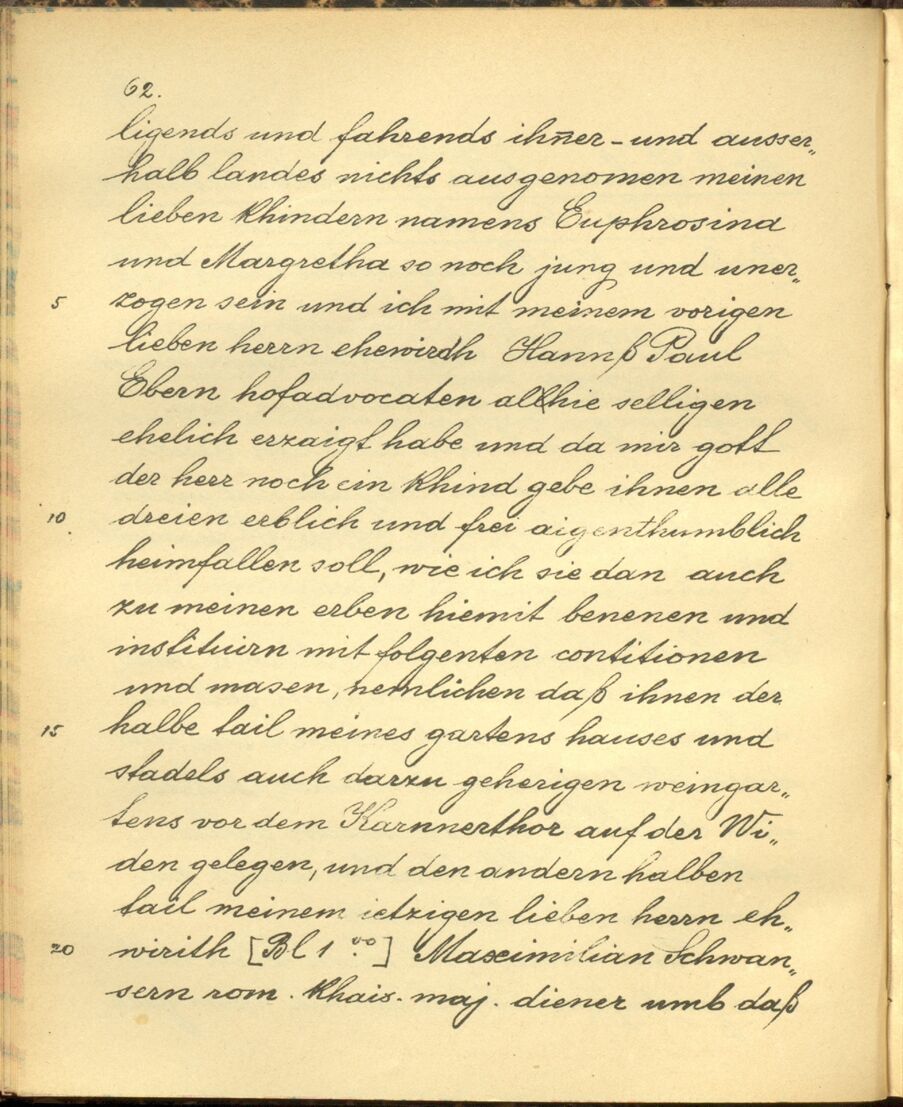 62.
ligends und fahrends ihn̄er - und ausser„
halb landes nichts ausgenomen meinen
lieben khindern namens Euphrosina
und Margretha so noch jung und uner„
5 zogen sein und ich mit meinem vorigen
lieben herrn ehewirdh Hannß Paul
Ebern hofadvocaten allhie selligen
ehelich erzaigt habe und da mir gott
der herr noch ein khind gebe ihnen alle
10 dreien erblich und frei aigenthumblich
heimfallen soll, wie ich sie dan auch
zu meinen erben hiemit benenen und
instituirn mit folgenten contitionen
und masen, nemlichen daß ihnen der
15 halbe tail meines gartens hauses und
stadels auch darzu geherigen weingar„
tens vor dem Karnnerthor auf der Wi„
den gelegen, und den andern halben
tail meinem ietzigen lieben herrn eh„
20 wirith [Bl 1 vo.] Maximilian Schwan„
sern rom. khais. maj. diener umb daß